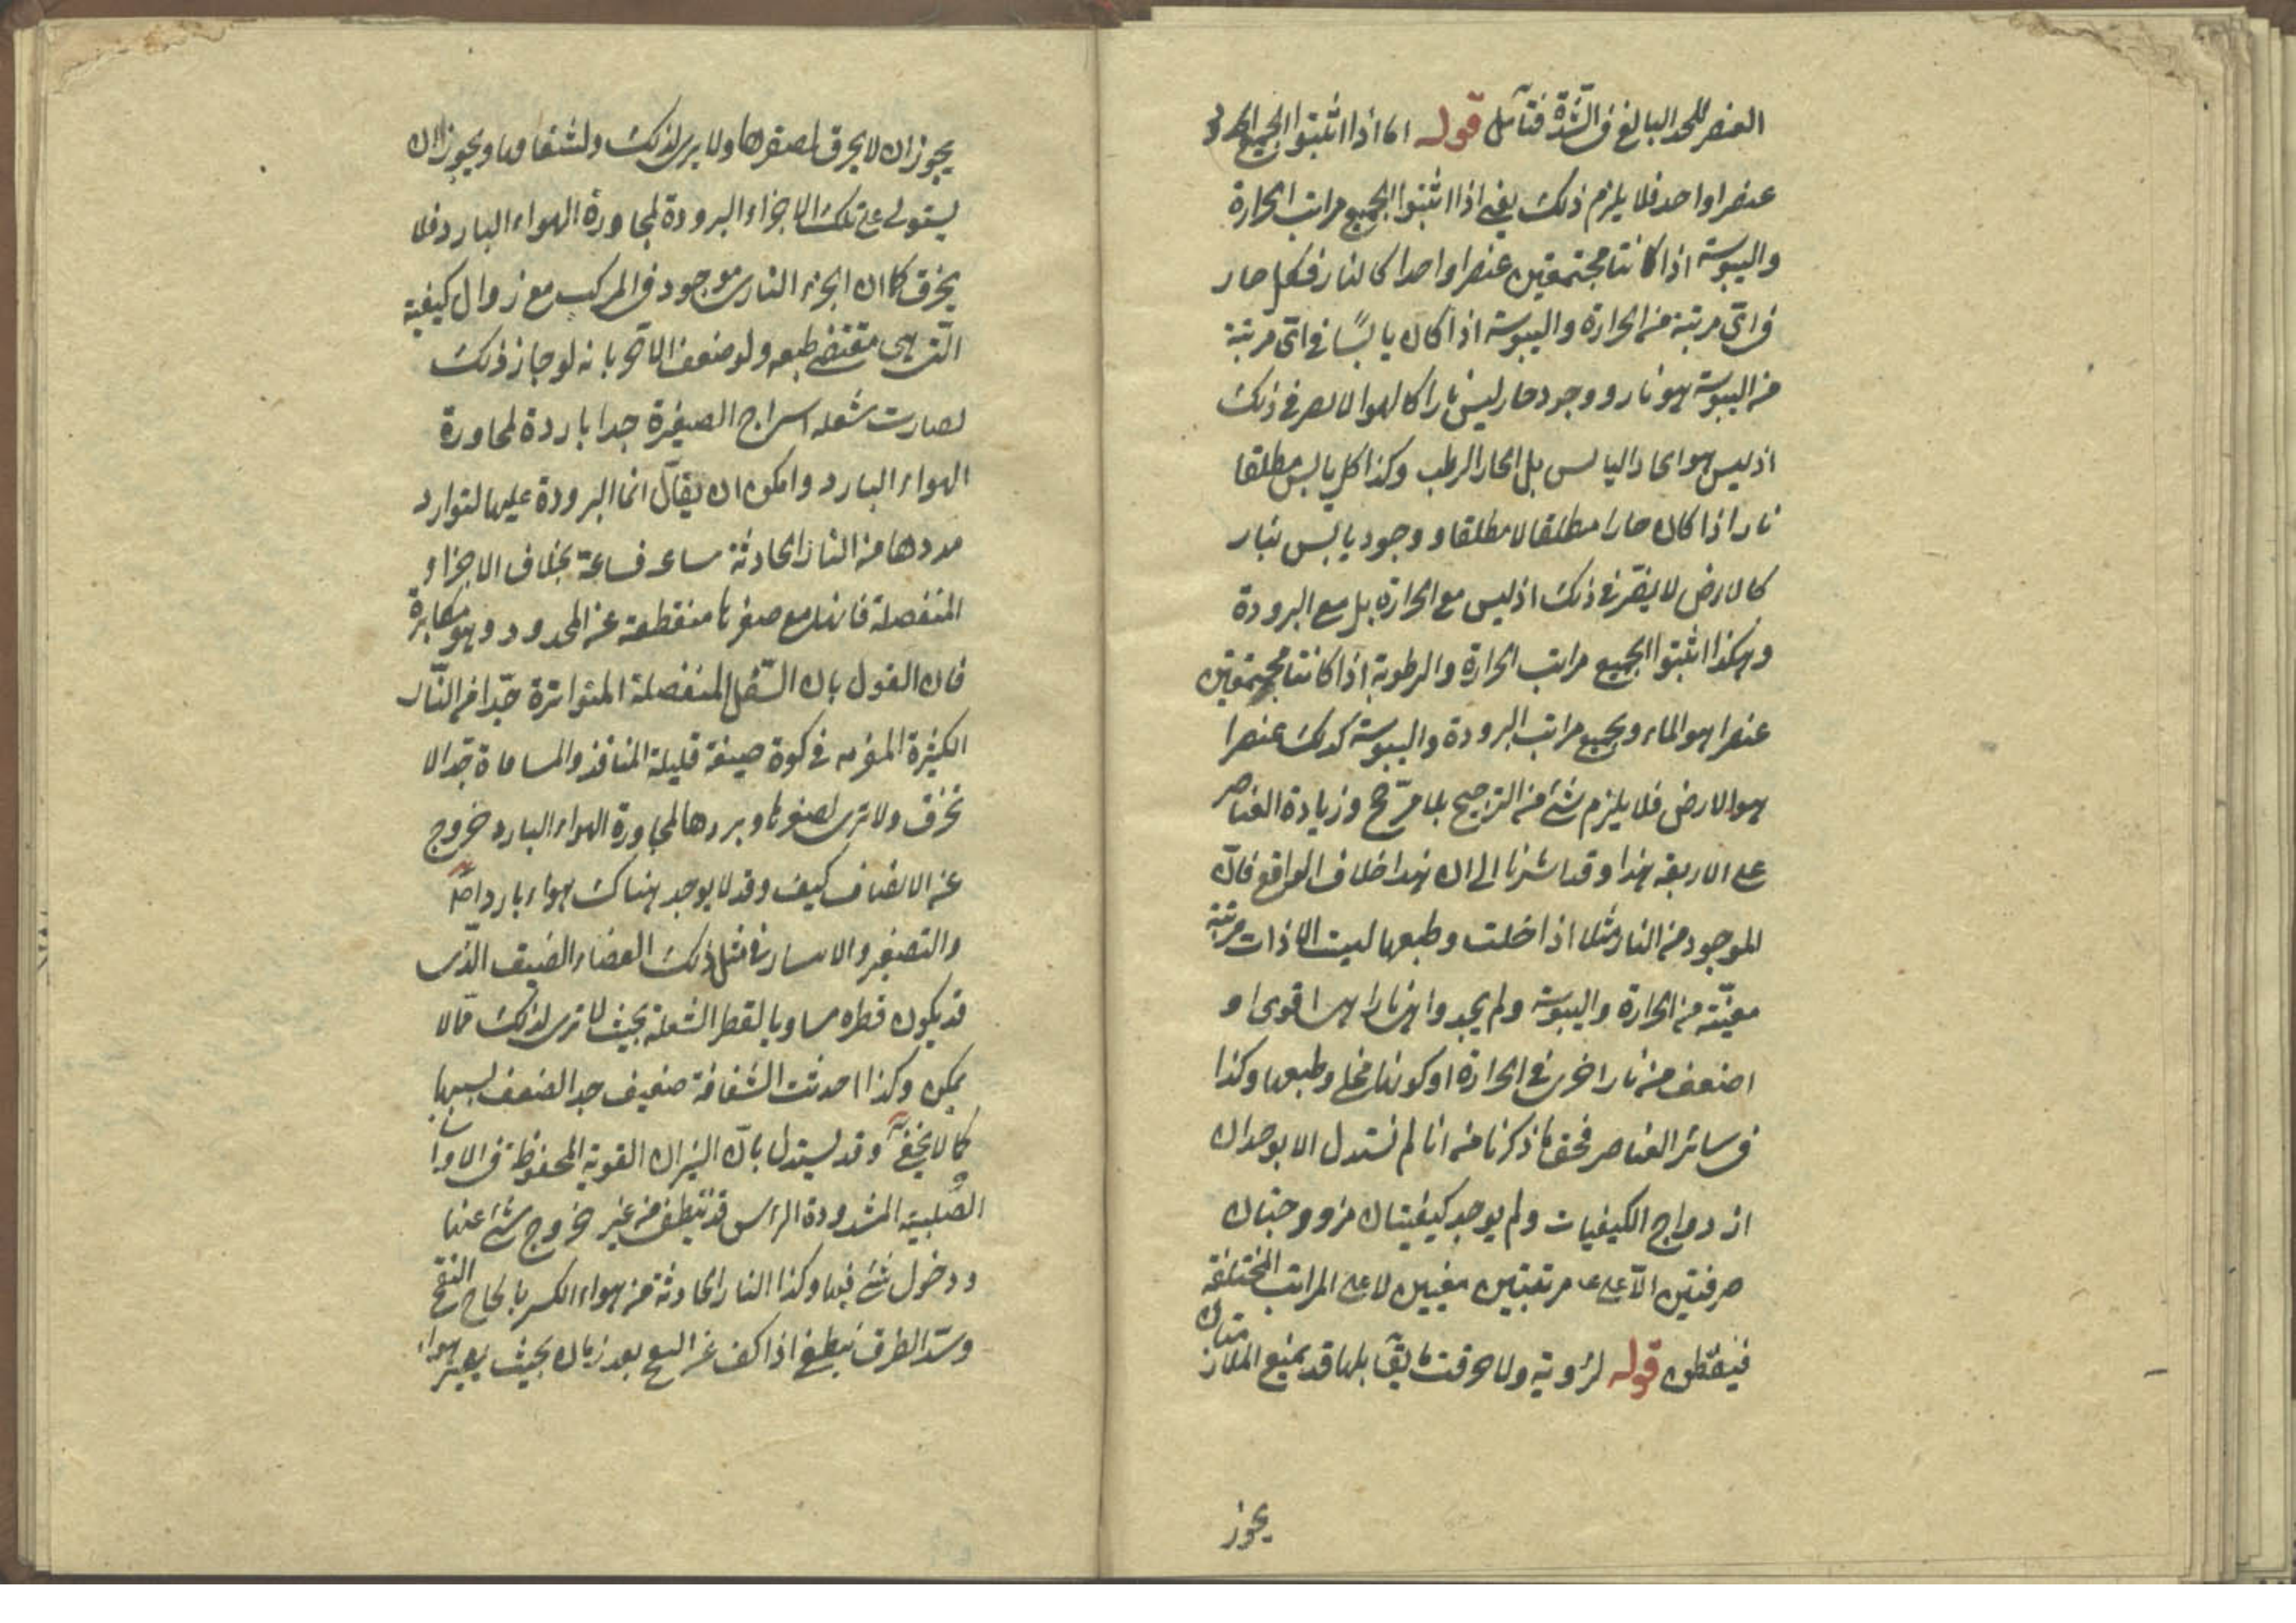 العنصر للحد البالغ فى الشدّة فتأمل قوله اما اذا اثبتوا لجميع
عنصرا واحد فلا يلزم ذلك يعنى اذا اثبتوا لجميع مراتب الحرارة
واليبوسة اذا كانتا مجتمعتين عنصرا واحدا كالنار فكل حار
فى اىّ مرتبة من الحرارة واليبوسة اذا كان يابسًا فى اىّ مرتبة
من اليبوسة هو نار ووجود حار ليس نارا كالهوا لا يضر فى ذلك
اذ ليس هو الحار اليابس بل الحار الرطب وكذا كل يابس مطلقا
نار اذا كان حارا مطلقا لا مطلقا ووجود يابس بنار
كالارض لا يضر فى ذلك اذ ليس مع الحرارة بل مع البرودة
وهكذا اثبتوا لجميع مراتب الحرارة والرطوبة اذا كانتا مجتمعتين
عنصرا هو الماء ولجميع مراتب البرودة واليبوسة كذلك عنصرا
هو الارض فلا يلزم شئ من الترجيح بلا مرجّح وزيادة العناصر
على الاربعة هذا وقد اشرنا الى ان هذا خلاف الواقع فانّ
الموجود من النار مثلا اذا خلت وطبعها ليست الا ذات مرتبة
معيّنة من الحرارة واليبوسة ولم يجدوا نارا اقوى او
اضعف من نار اخرى فى الحرارة او كونها مخلى وطبعها وكذا
فى سائر العناصر فحق ما ذكرنا من انا لم نستدل الا بوجدان
ازدواج الكيفيات ولم يوجد كيفيتان مزووجتان
صرفتين الّا على مرتبتين معينين لا على المراتب المختلفة
فيفطن قوله لرؤيته ولاحرقت ما يقابلها قد يمنع الملازمتان
يجوز
يجوز ان لا يحرق لصغرها ولا يرى لذلك ولشفافها ويجوز ان
يستولى على تلك الاجزاء البرودة لمجاورة الهواء البارد فلا
يحرق كما ان الجزء النارى موجود فى المركب مع زوال كيفية
التى هى مقتضى طبعه ولو ضعف الاخير بانه لو جاز ذلك
لصارت شعلة السراج الصغيرة جدا باردة لمجاورة
الهواء البارد وامكن ان يقال انما البرودة عليها لتوارد
مددها من النار الحادثة ساعة فساعة بخلاف الاجزاء
المنفصلة فانها مع صغرها منقطعة عن المدد وهو مكابرة
فان القول بان الشعل المنفصلة المتواترة جدّا من النّار
الكثيرة فى كوة ضيقة قليلة المنافذ والمسامات جدّا لا
تحرق ولا ترى لصغرها وبردها لمجاورة الهواء البارد خروج
عن الانصاف كيف وقد لا يوجد هناك هواء بارد اصلا
والتصغير فى مثل ذلك الفضاء الضيق الّذى
قد يكون قطره مساويا لقطر الشعلة بحيث لا ترى لذلك ممّا لا
يمكن وكذا احدثت الشفافة ضعيف جدا لضعف لسبها
كما لا يخفى وقد يستدل بانّ النيران القوية المحفوظة فى الاوانى
الصلبية المشدودة الرأس قد تنطفى من غير خروج شئ عنها
ودخول شئ فيها وكذا النار الحادثة من هواء الكير بالحاح النفخ
وسدّ الطرق تنطفى اذا كف عن النفخ بعد زمان بحيث يصير هواء